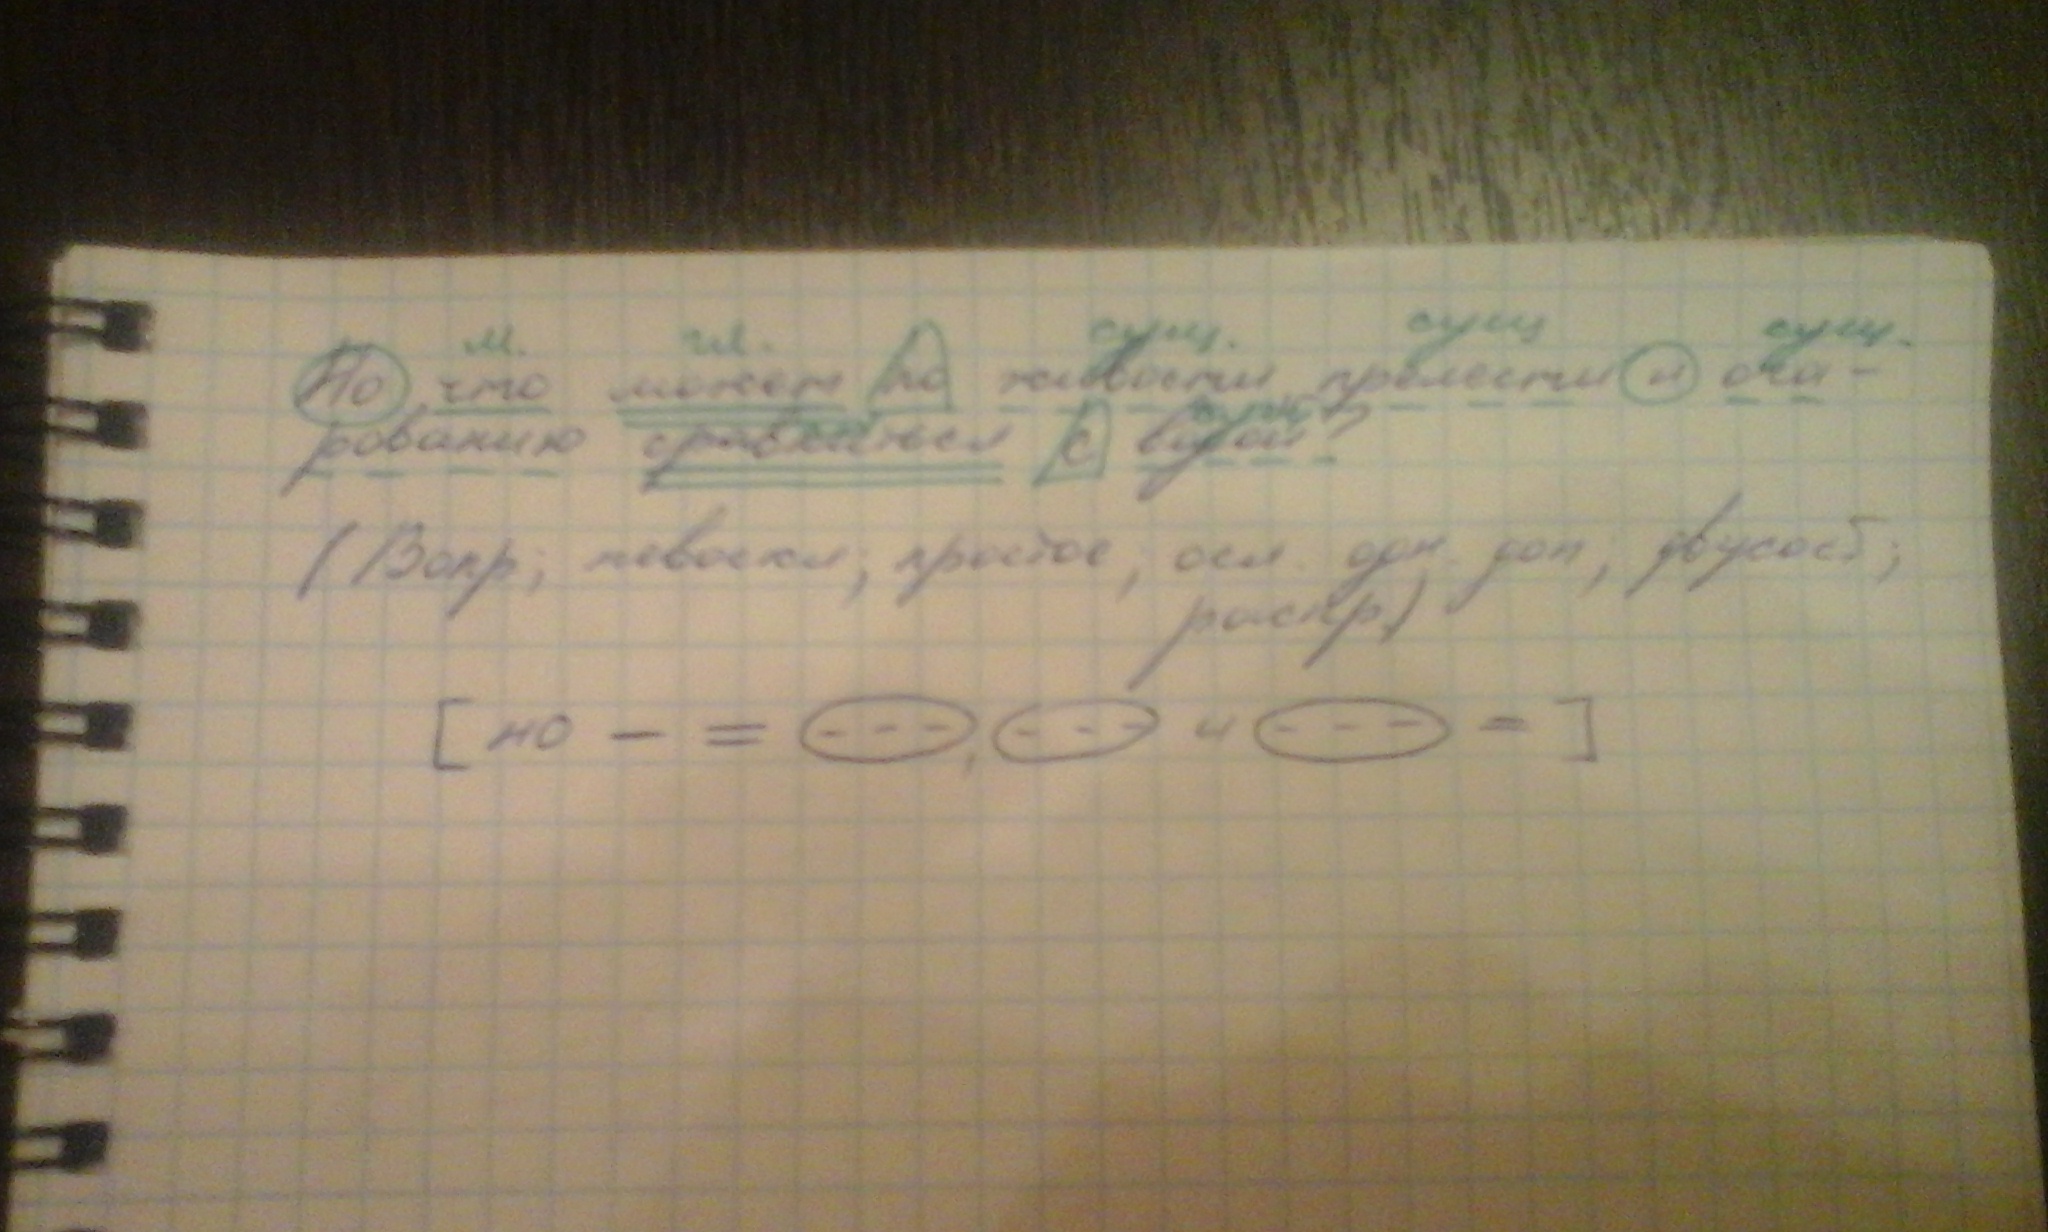 м. гл. сущ. сущ сущ.
Но что может по живости прелести и оча-
рованию сравниться с водой?
(Вопр; невоскл; простое; осл. одн. доп; двусост;
распр)
[но — = (---), (---) и (---) = ]